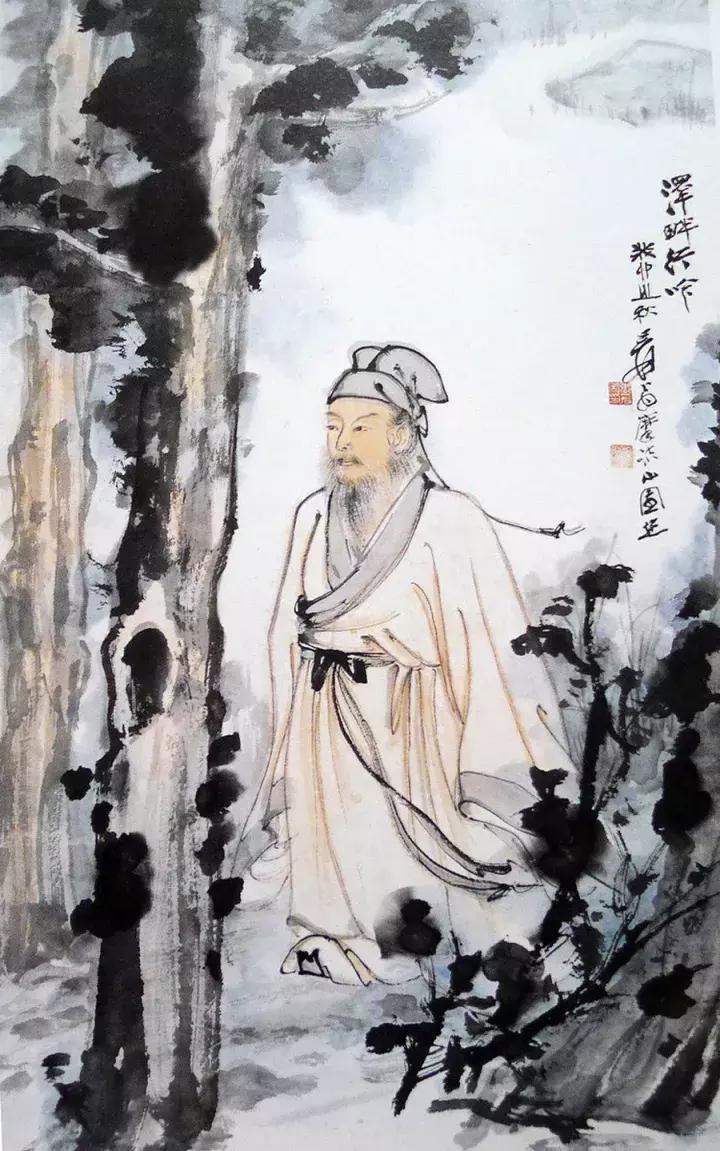 澤畔行吟
癸卯秋爰翁摩詰山園